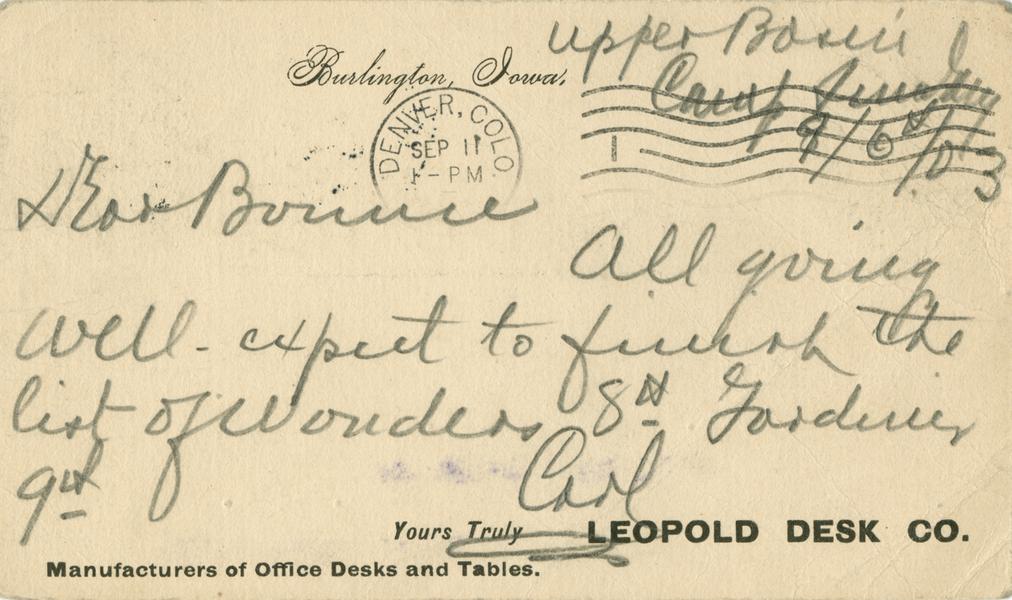 Upper Basin
Camp Sunday
9/6th/03
Burlington, Iowa.
DENVER, COLO
SEP 11
1-PM
1
Dear Bonnie
All going
well - expect to finish the
list of Wonders 8th Gardiner
9th
Carl
Yours Truly LEOPOLD DESK CO.
Manufacturers of Office Desks and Tables.